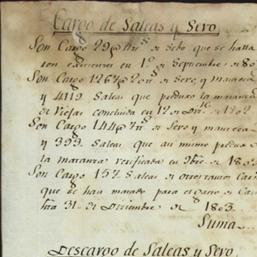 Cargo de Saleas y Sevo
Son Cargo 29@ de Sebo que se halla
son existentes en 1º de Septiembre de 180
Son Cargo 1267@ de Sevo, y manteca
y 4119 Saleas que produxo la matanza
de Viejas concluida en 12 de de 1802
Son Cargo 114@ de Sevo y manteca
y 399 Saleas que asi mismo produxo
la matanza verificada en 9bre de 180
Son Cargo 157 Saleas de otros tantos Car
que se han matado para el gasto de Ca
hta 31 de Diciembre de 1803
Suma
Descargo de Saleas y Sevo